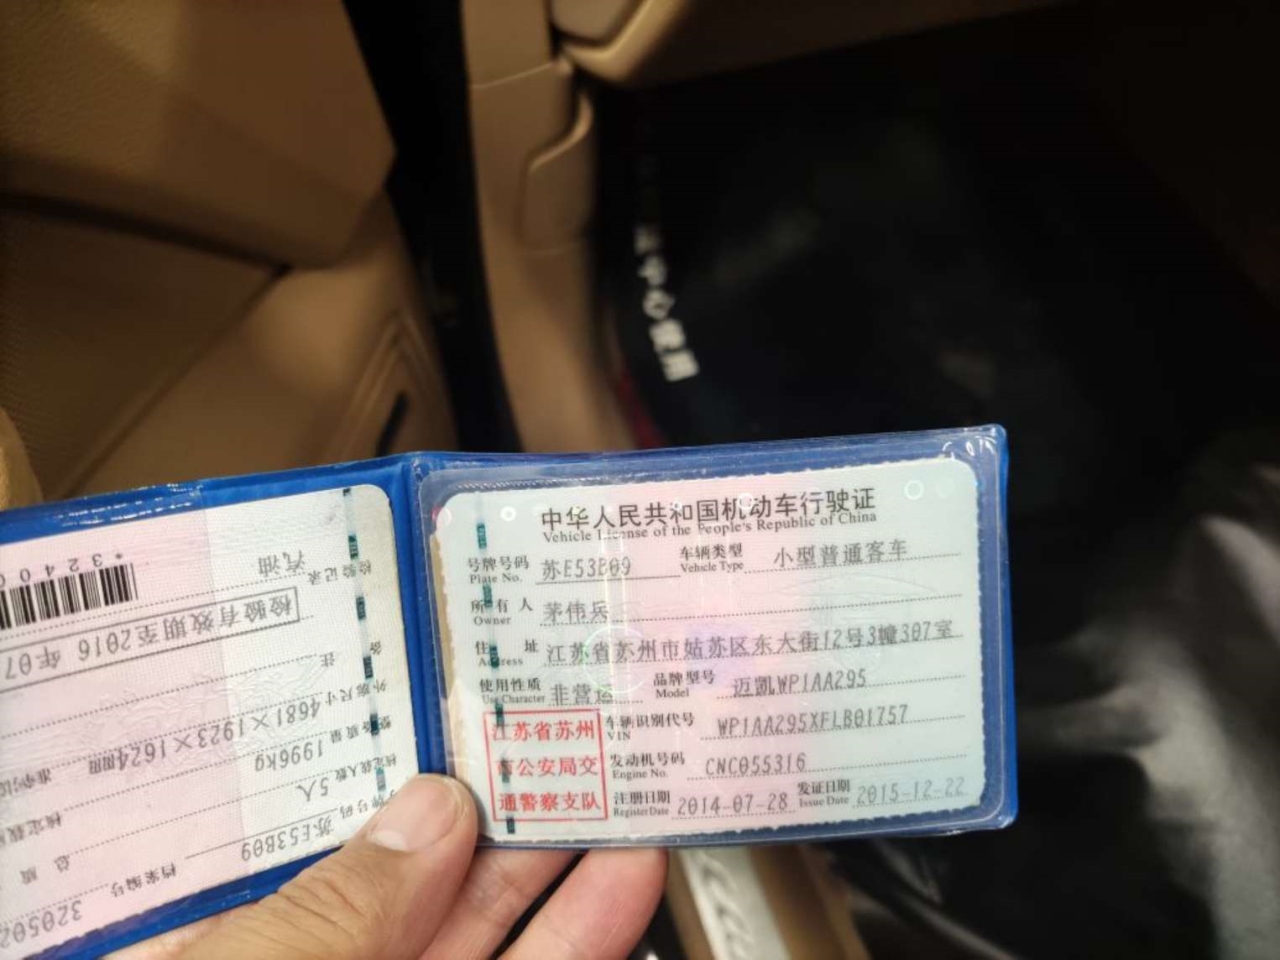 中华人民共和国机动车行驶证
Vehicle License of the People's Republic of China
号牌号码 苏E53B09 车辆类型 小型普通客车
Plate No. Vehicle Type
所有人 茅伟兵
Owner
住址 江苏省苏州市姑苏区东大街12号3幢307室
Address
使用性质 非营运 品牌型号 迈凯WP1AA295
Use Character Model
江苏省苏州
市公安局交
通警察支队
车辆识别代号 WP1AA295XFLB01757
VIN
发动机号码 CNC055316
Engine No.
注册日期 2014-07-28 发证日期 2015-12-22
Register Date Issue Date
档案编号 320502
号牌号码 苏E53B09
核定载人数 5人 总质
整备质量 1996kg 核定载
外廓尺寸 4681×1923×1624mm 准牵引
备注
检验有效期至2016年07
检验记录 汽油
*32400
中心使用